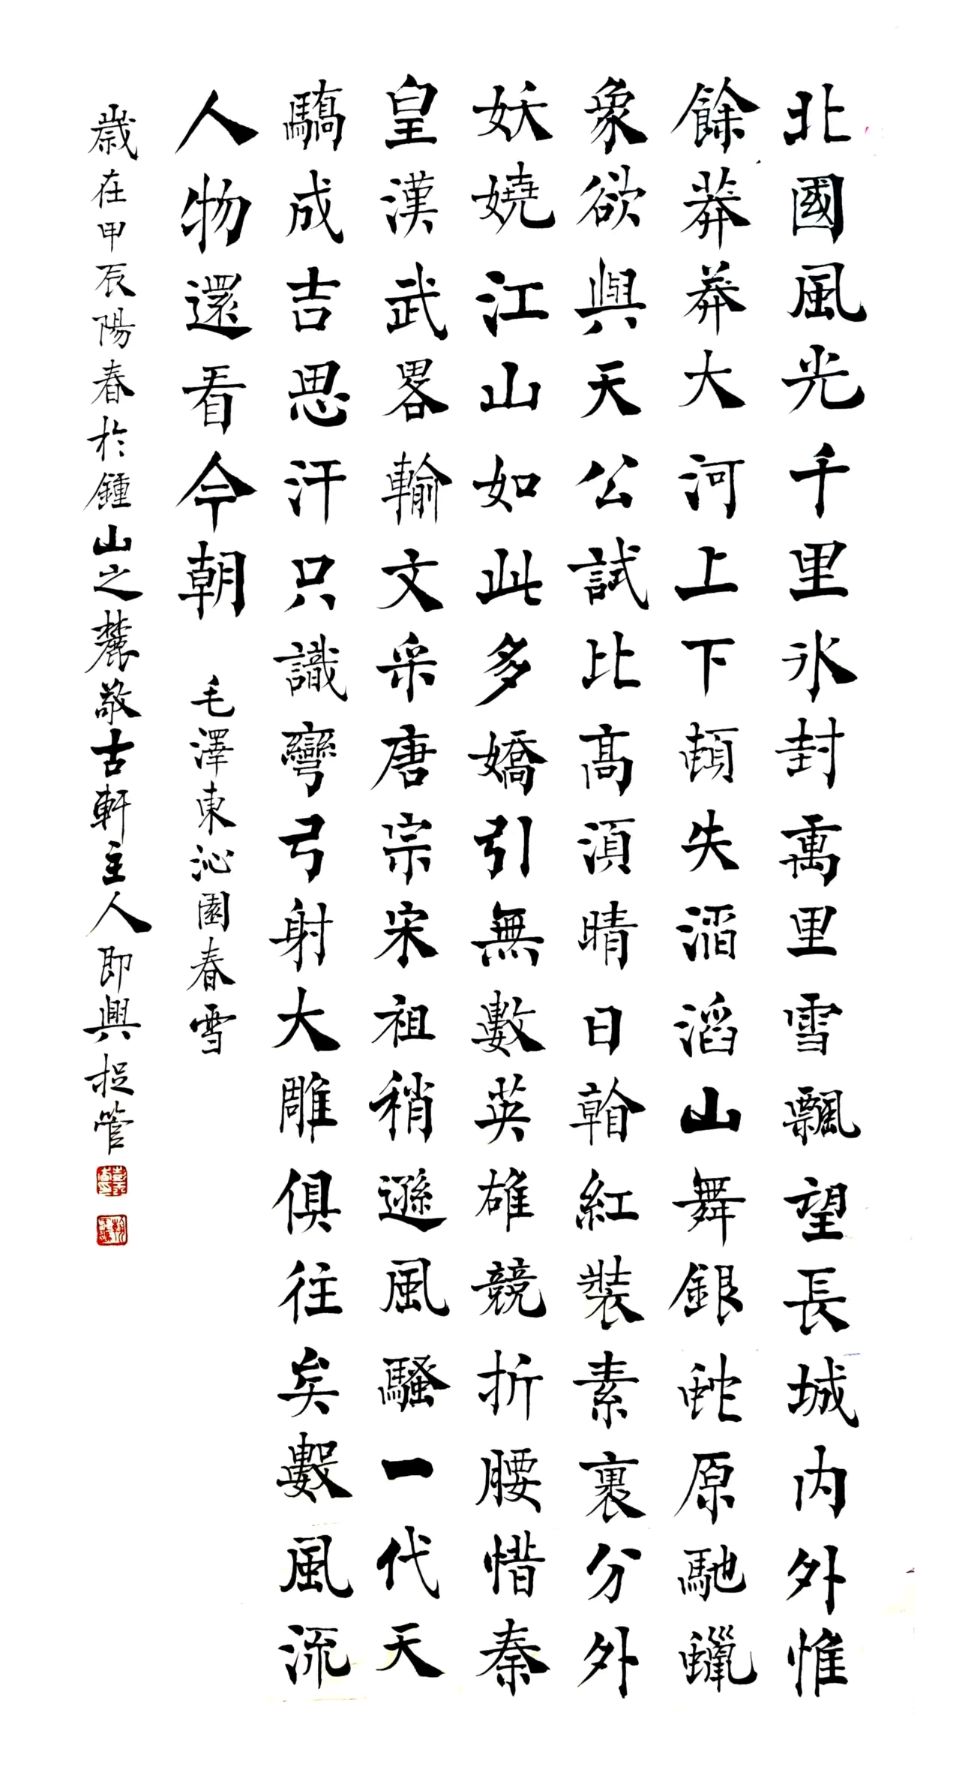 北國風光千里氷封萬里雪飄望長城内外惟
餘莽莽大河上下頓失滔滔山舞銀蛇原馳蠟
象欲與天公試比髙須晴日看紅裝素裹分外
妖嬈江山如此多嬌引無數英雄競折腰惜秦
皇漢武畧輸文采唐宗宋祖稍遜風騷一代天
驕成吉思汗只識彎弓射大雕俱往矣數風流
人物還看今朝 毛澤東沁園春雪
歲在甲辰陽春於鍾山之麓敬古軒主人即興捉管